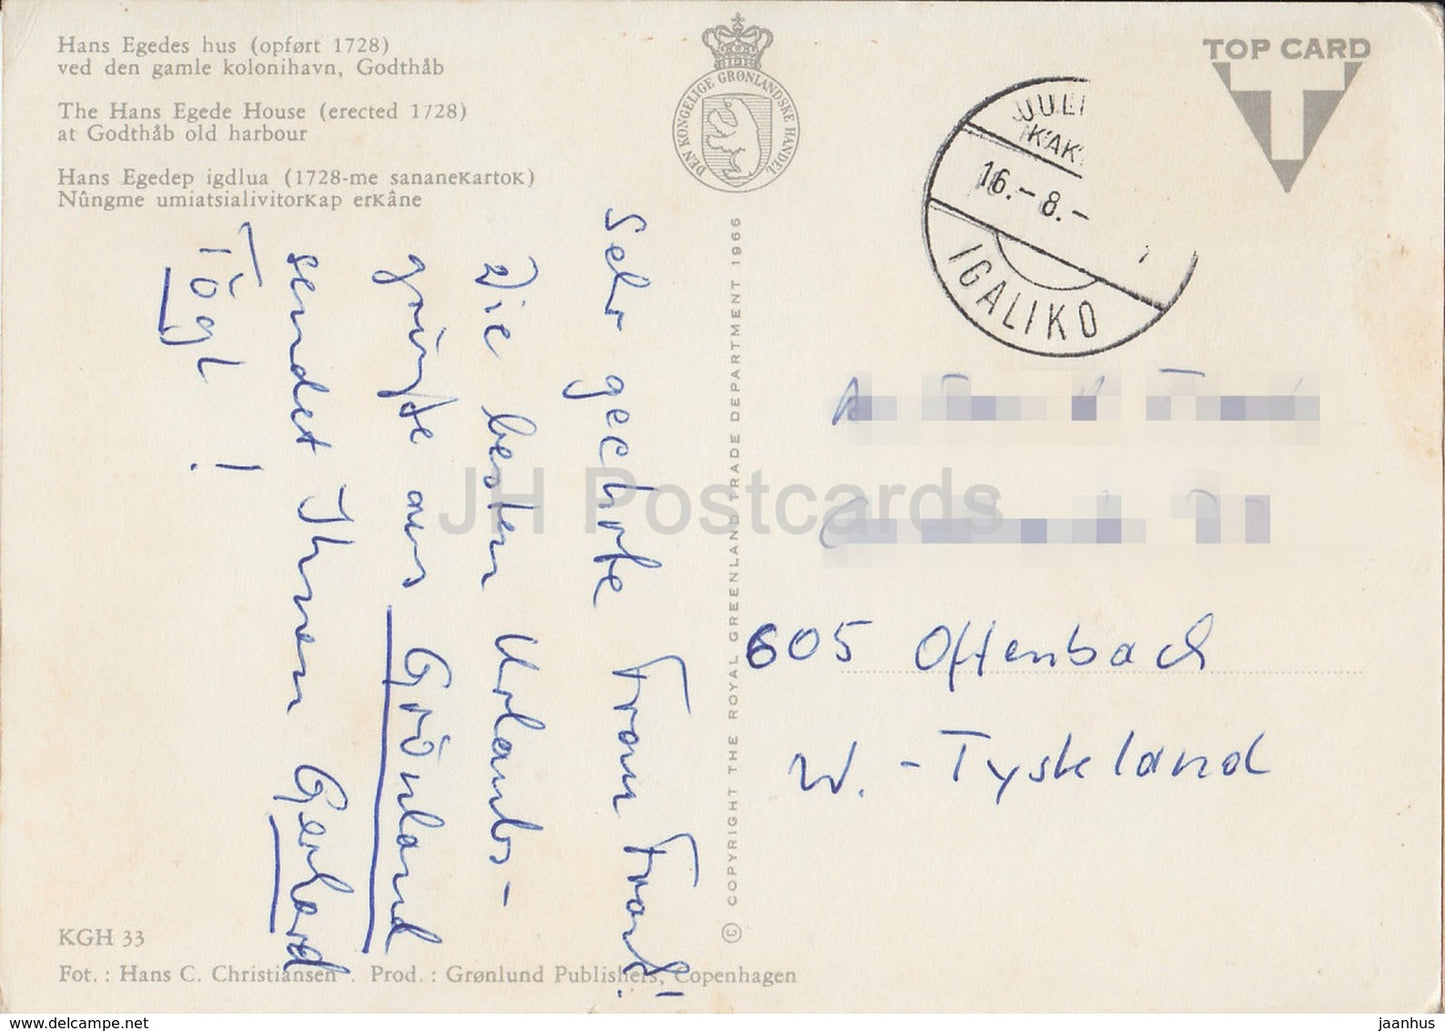 Hans Egedes hus (opført 1728)
ved den gamle kolonihavn, Godthåb
The Hans Egede House (erected 1728)
at Godthåb old harbour
Hans Egedep igdlua (1728-me sananeĸartoĸ)
Nûngme umiatsialivitorĸap erĸâne
DEN KONGELIGE GRØNLANDSKE HANDEL
TOP CARD
16.-8.-
IGALIKO
Sehr geehrte Frau
Die besten Urlaubs-
grüße aus Grönland
sendet Ihnen Gerhard
!
605 Offenbach
W.-Tyskland
© COPYRIGHT THE ROYAL GREENLAND TRADE DEPARTMENT 1966
JH Postcards
KGH 33
Fot.: Hans C. Christiansen. Prod.: Grønlund Publishers, Copenhagen
hippostcard-eu.com
jaanhus